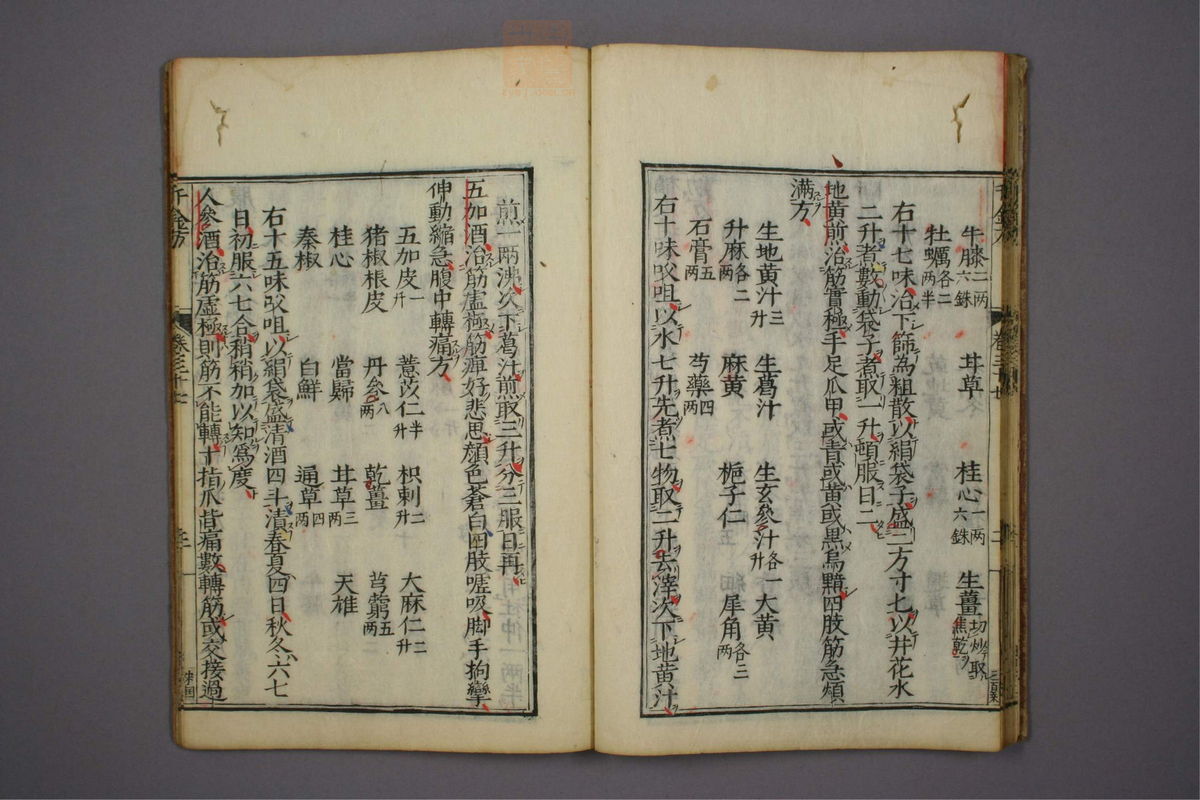 牛膝二两六銖 甘草 桂心一两六銖 生薑切炒取焦乾
牡蠣各二两半
右十七味治下篩為粗散以絹袋子盛二方寸匕以井花水
二升煮數動袋子煮取一升頓服日二
地黄煎治筋實極手足爪甲或青或黄或黒烏黯四肢筋急煩
満方
生地黄汁三升 生葛汁 生玄參汁各一升 大黄
升麻各二两 麻黄 梔子仁 犀角各三两
石膏五两 芍藥四两
右十味㕮咀以水七升先煮七物取二升去滓次下地黄汁
煎一两沸次下葛汁煎取三升分三服日再
五加酒治筋虚極筋痺好悲思顔色蒼白四肢嘘吸脚手拘攣
伸動縮急腹中轉痛方
五加皮一斤 薏苡仁半升 枳刺二升 大麻仁三升
猪椒根皮 丹參八两 乾薑 芎藭五两
桂心 當歸 甘草三两 天雄
秦椒 白鮮 通草四两
右十五味㕮咀以絹袋盛清酒四斗漬春夏四日秋冬六七
日初服六七合稍稍加以知為度
人參酒治筋虚極則筋不能轉十指爪皆痛數轉筋或交接過
千金方
卷三十七